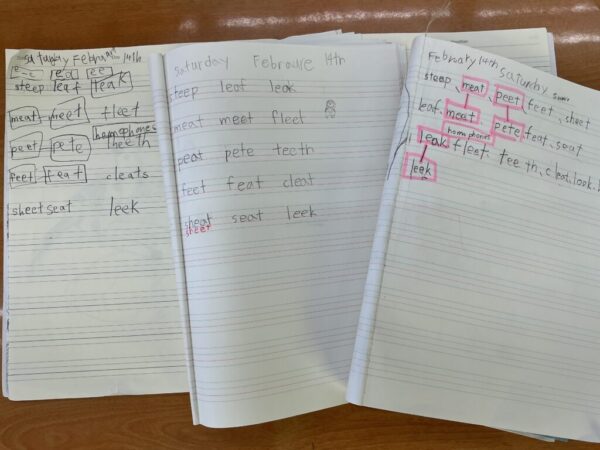 Saturday 14th
e-e ea ee
steep leaf leak
meat meet fleet
homophones
peet pete theeth
feet feat cleats
sheet seat leek
saturday Febroure 14th
steep leof leak
meat meet fleet
peat pete teeth
feet feat cleat
sheat seat leek
sheet
February 14th Saturday
steep, meat, peet, feet, sheet
leaf, meat pete feat, seat
homophones
leak fleet, teeth, cleat, look,
leek